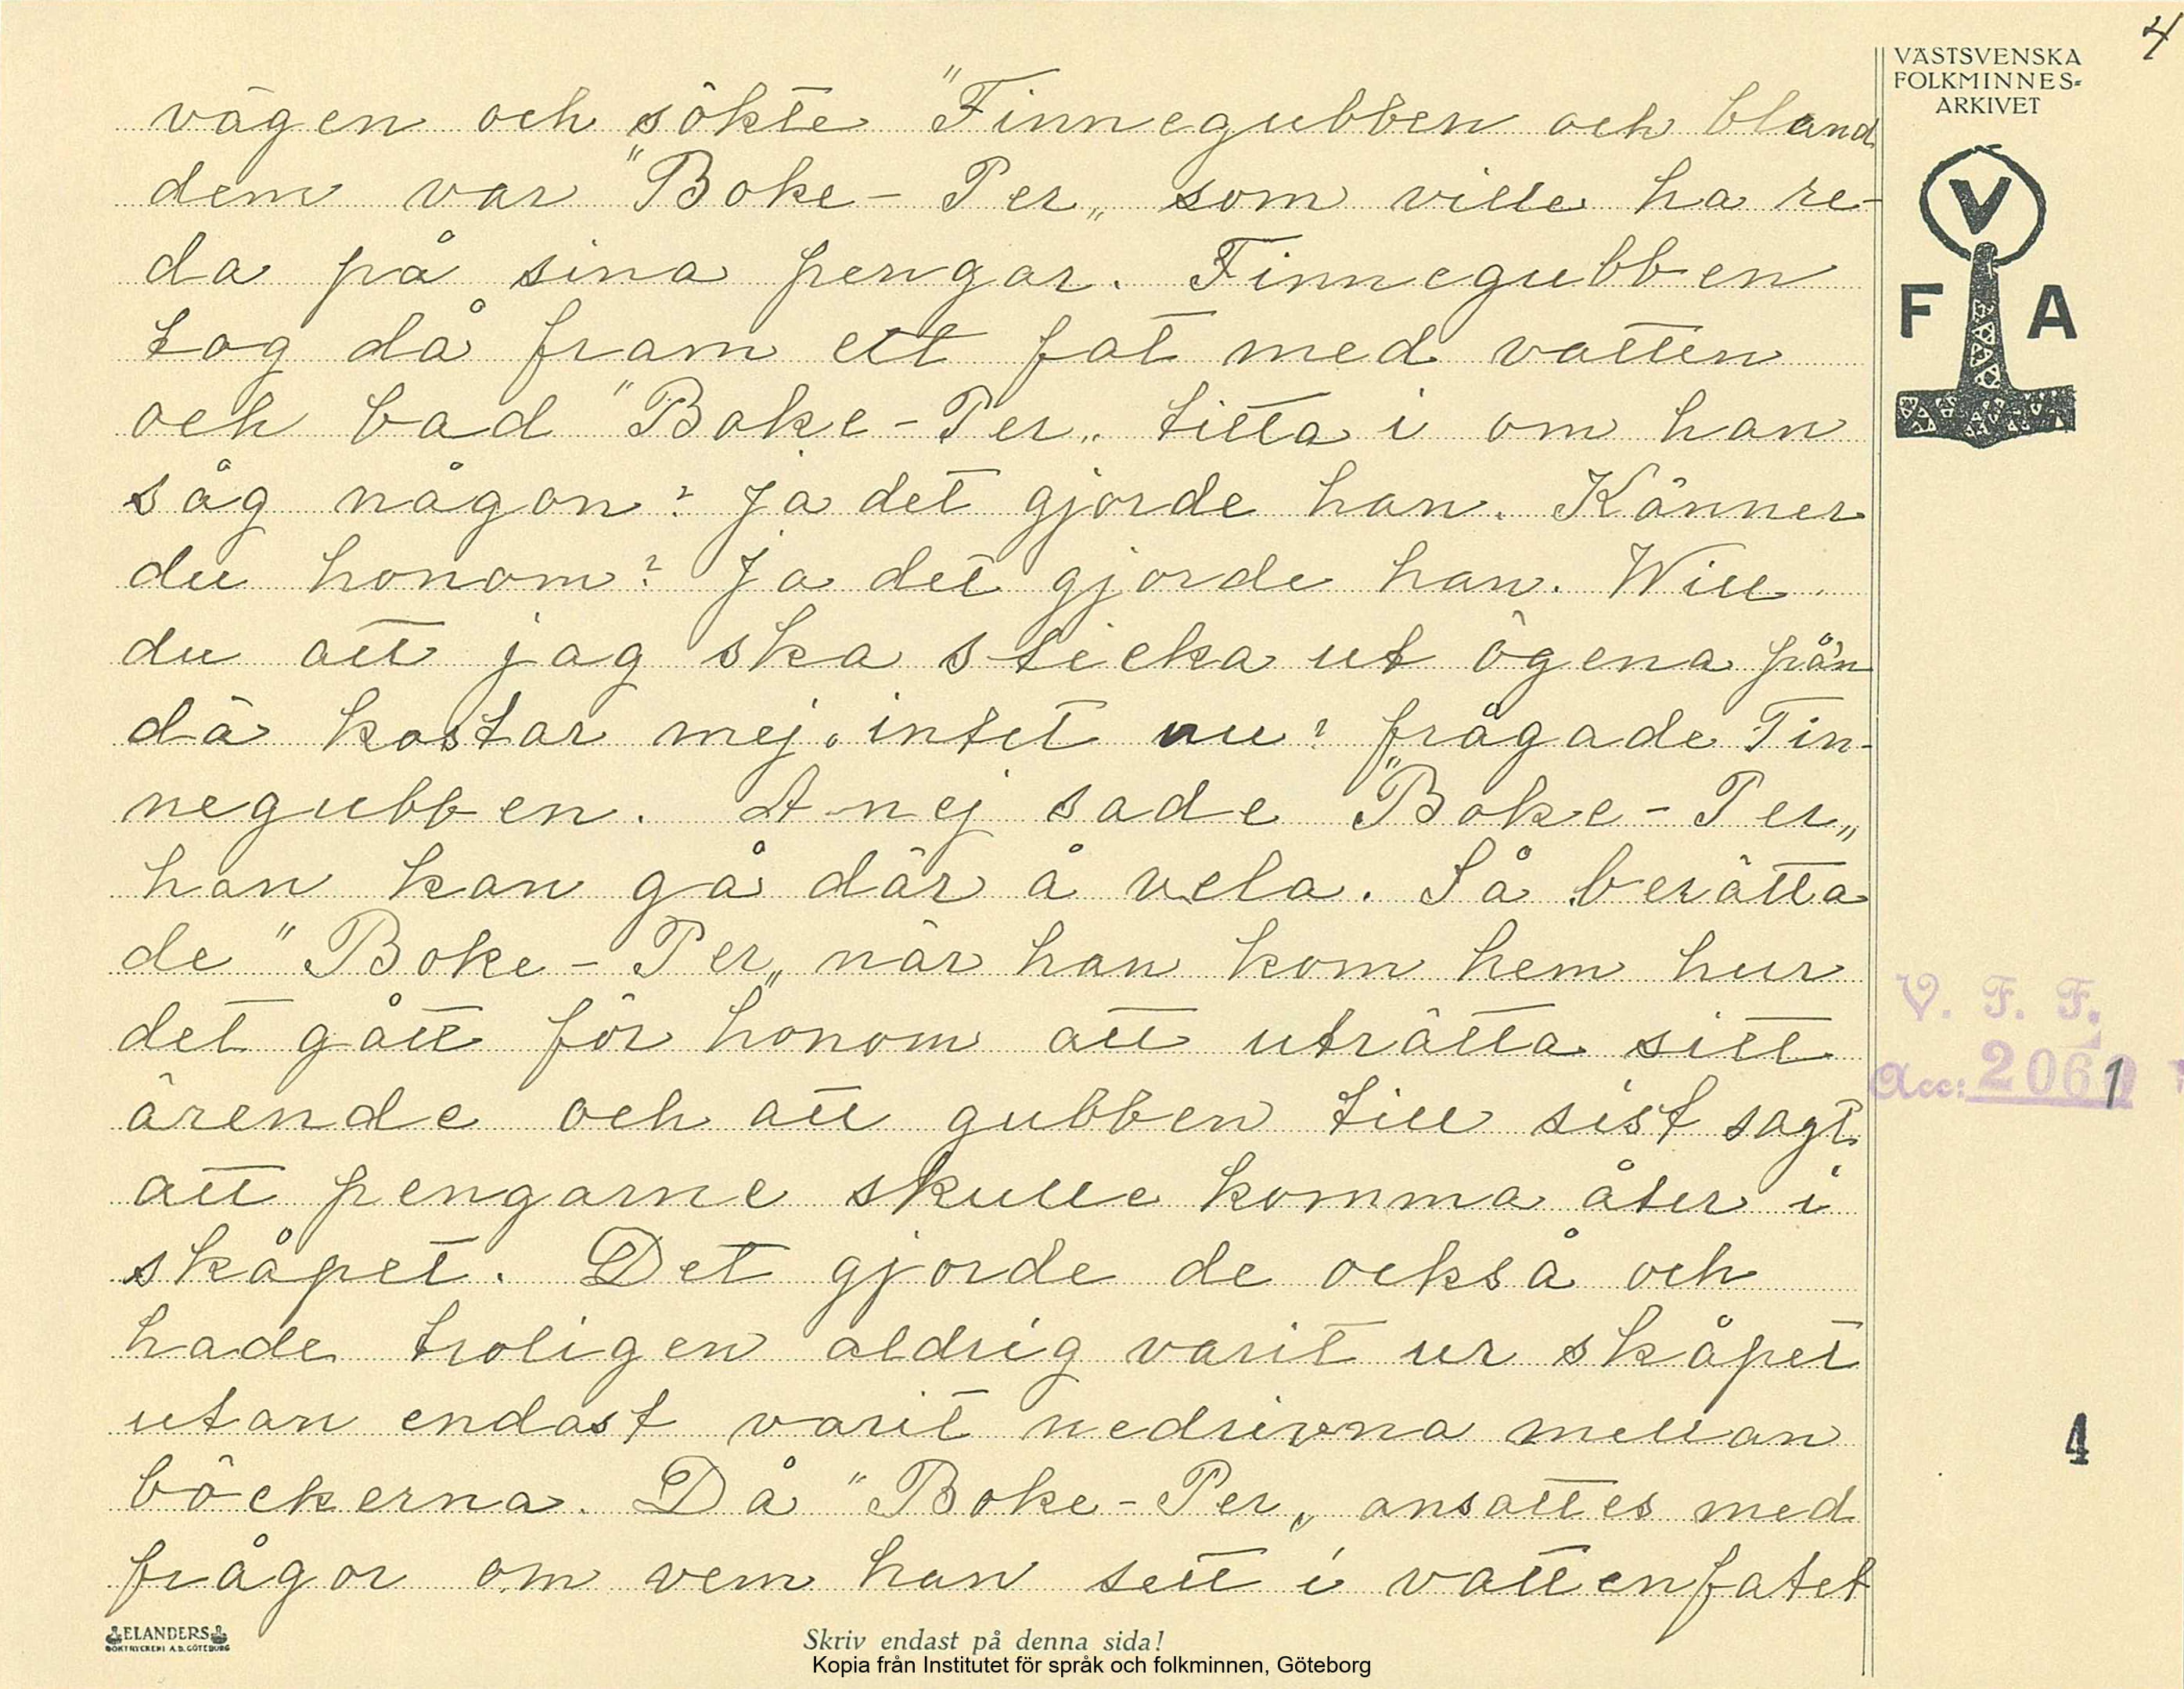 4
VÄSTSVENSKA
FOLKMINNES-
ARKIVET
V
F A
vägen och sökte "Finnegubben och bland
dem var "Boke-Per„ som ville ha re-
da på sina pengar. Finnegubben
tog då fram ett fat med vatten
och bad "Boke-Per„ titta i om han
såg någon? Ja det gjorde han. Känner
du honom? Ja det gjorde han. Will
du att jag ska sticka ut ögena från
dä kostar mej intet nu? frågade Fin-
negubben. A nej sade "Boke-Per„
han kan gå där å vela. Så berätta
de "Boke-Per„ när han kom hem hur
det gått för honom att uträtta sitt
ärende och att gubben till sist sagt
att pengarne skulle komma åter i
skåpet. Det gjorde de också och
hade troligen aldrig varit ur skåpet
utan endast varit nedrivna mellan
böckerna. Då "Boke-Per„ ansattes med
frågor om vem han sett i vattenfatet
V. F. F.
Acc: 2061
4
ELANDERS
BOKTRYCKERI A.B. GÖTEBORG
Skriv endast på denna sida!
Kopia från Institutet för språk och folkminnen, Göteborg